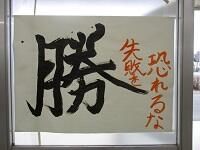 恐れるな
失敗を
勝